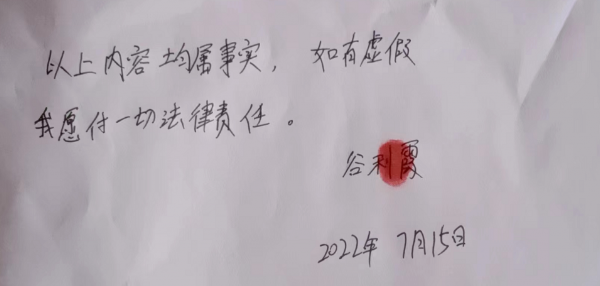 以上内容均属事实，如有虚假
我愿付一切法律责任。
谷利霞
2022年7月15日